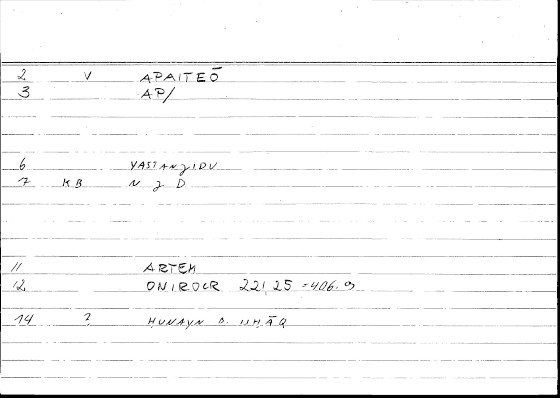 2 V APAITEŌ
3 AP/
6 YASTANJIDU
7 KB N J D
11 ARTEM
12 ONIROCR 221,25 = 406.9
14 ? HUNAYN B. ISHĀQ